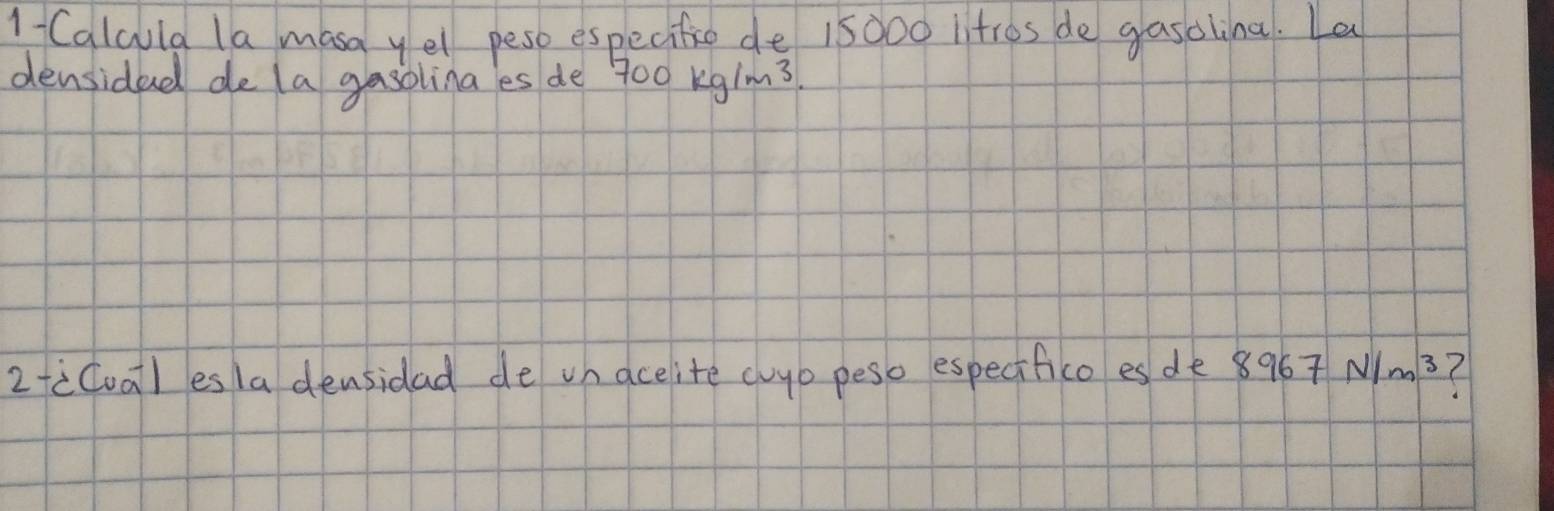 1-Calcula la masa y el peso especifico de 15000 litros de gasolina. La
densidad de la gasolina es de 700 kg/m³.
2-¿Cuál es la densidad de un aceite cuyo peso especifico es de 8967 N/m³?